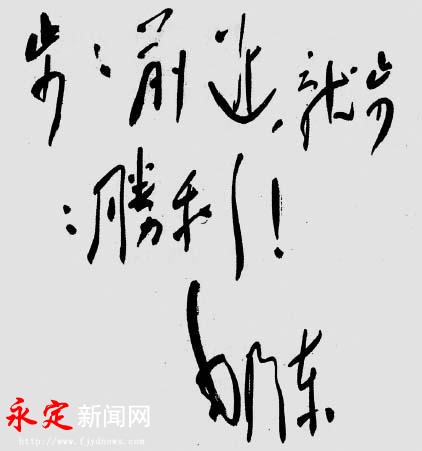 步:前進,就步
:勝利!
永定新闻网
http://www.fjydnews.com